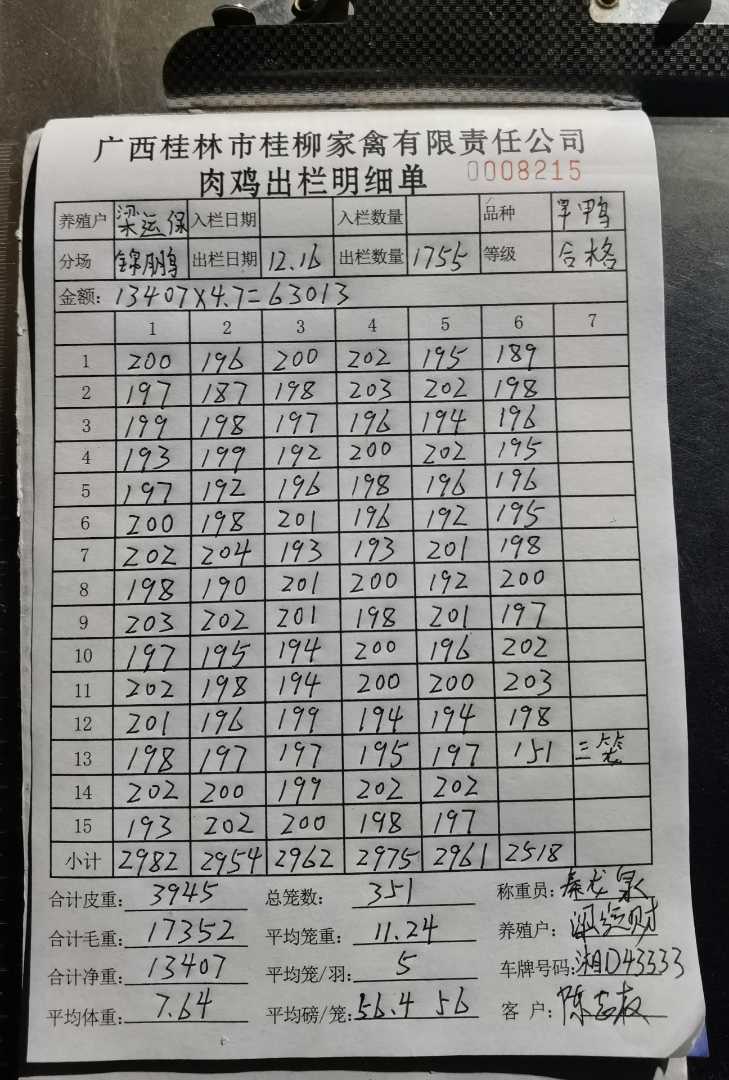 广西桂林市桂柳家禽有限责任公司
肉鸡出栏明细单 0008215
养殖户 梁运保 入栏日期 入栏数量 品种
分场 锦鹏 出栏日期 12.16 出栏数量 1755 等级 合格
金额: 13407×4.7=63013
1 2 3 4 5 6 7
1 200 196 200 202 195 189
2 197 187 198 203 202 198
3 199 198 197 196 194 196
4 193 199 192 200 202 195
5 197 192 196 198 196 196
6 200 198 201 196 192 195
7 202 204 193 193 201 198
8 198 190 201 200 192 200
9 203 202 201 198 201 197
10 197 195 194 200 196 202
11 202 198 194 200 200 203
12 201 196 199 194 194 198
13 198 197 197 195 197 151 三笼
14 202 200 199 202 202
15 193 202 200 198 197
小计 2982 2954 2962 2975 2961 2518
合计皮重: 3945 总笼数: 351 称重员: 秦龙泉
合计毛重: 17352 平均笼重: 11.24 养殖户:
合计净重: 13407 平均笼/羽: 5 车牌号码: 湘D43333
平均体重: 7.64 平均磅/笼: 56.4 56 客 户: 陈志权